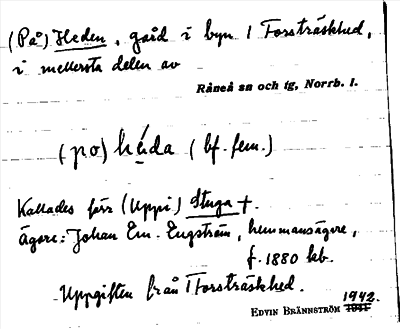 (På) Heden, gård i byn 1 Forsträskhed,
i mellersta delen av
Råneå sn och tg, Norrb. l.
(po) héda (bf. fem.)
Kallades förr (Uppi) Stuga +.
Ägare: Johan Em. Engström, hemmansägare,
f. 1880 kb.
Uppgiften från 1 Forsträskhed.
1942.
EDVIN BRÄNNSTRÖM 1941